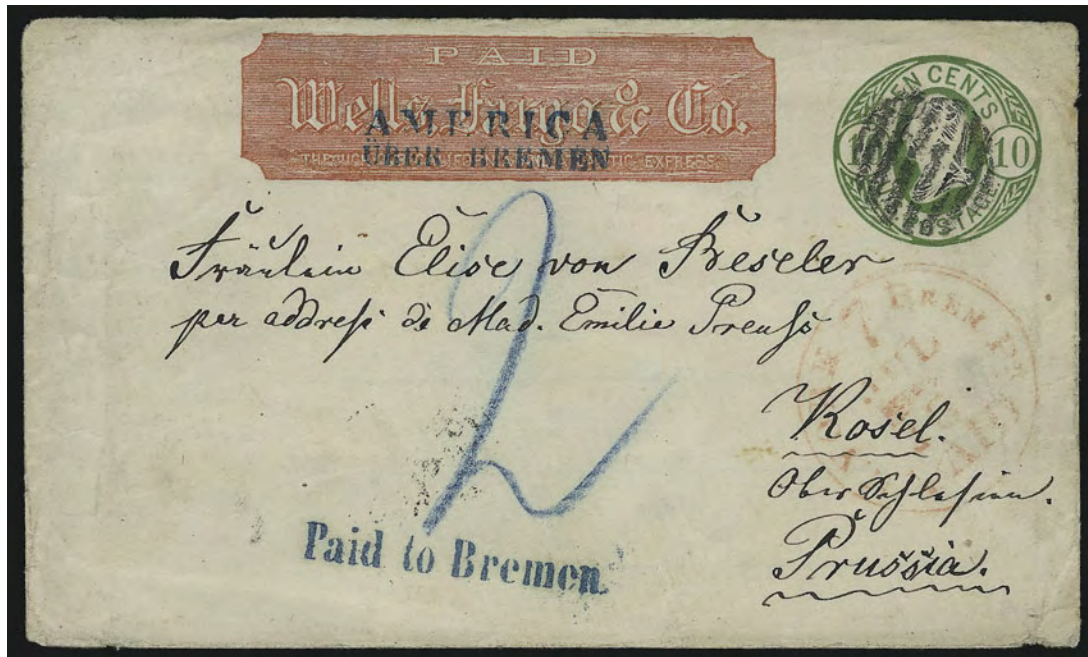 PAID
Wells, Fargo & Co.
AMERICA
ÜBER BREMEN
EXPRESS.
TEN CENTS
10 10
U.S. POSTAGE.
Fräulein Elise von Beseler
per addresse de Mad. Emilie Preuss
2
7
BREM. PK
JUL
PAID
Kosel.
Ober Schlesien.
Prussia.
Paid to Bremen.